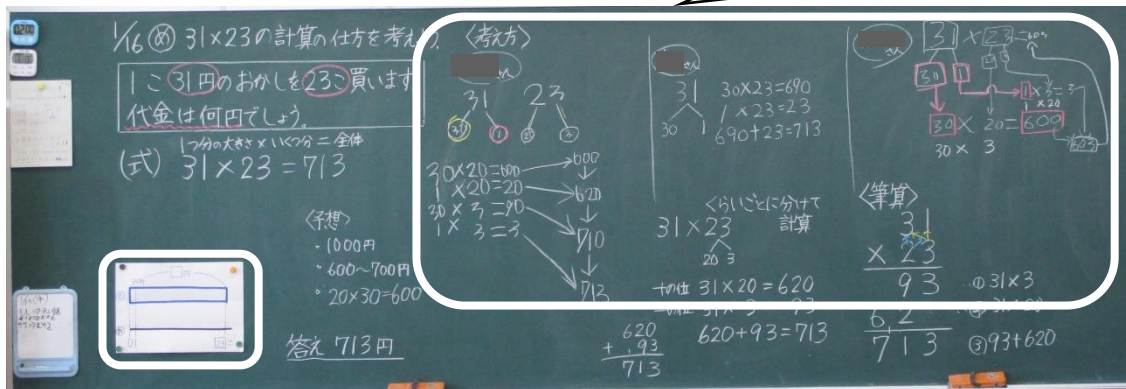 1/16 め 31×23の計算の仕方を考え
1こ31円のおかしを23こ買います
代金は何円でしょう。
1つ分の大きさ×いくつ分=全体
(式) 31×23=713
〈予想〉
・1000円
・600〜700円
・20×30=600
答え 713円
〈考え方〉
さん
31 23
30 1 20 3
30×20=600
1×20=20
30×3=90
1×3=3
600
620
710
713
さん
31
30 1
30×23=690
1×23=23
690+23=713
〈くらいごとに分けて
計算
31×23
20 3
十の位 31×20=620
620+93=713
620
+ 93
713
さん
31×23=603
30 1
1×3=3
×20
30×20=600
30×3
603
〈筆算〉
31
×23
93
62
713
①31×3
③93+620